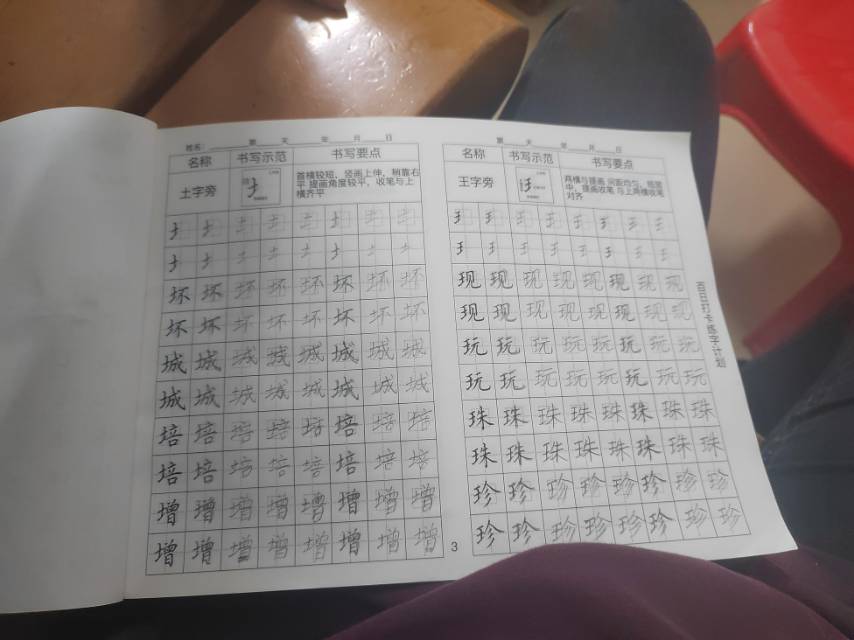 姓名: 第 天 年 月 日
名称 书写示范 书写要点
土字旁
首横较短，竖画上伸，稍靠右
平 提画角度较平，收笔与上
横齐平
坏 坏 坏 坏 坏 坏 坏 坏
坏 坏 坏 坏 坏 坏 坏 坏
城 城 城 城 城 城 城 城
城 城 城 城 城 城 城 城
培 培 培 培 培 培 培 培
培 培 培 培 培 培 培 培
增 增 增 增 增 增 增 增
增 增 增 增 增 增 增 增
3
第 天 年 月 日
名称 书写示范 书写要点
王字旁
两横与提画 间距均匀，短竖
中，提画收笔 与上两横收笔
对齐
现 现 现 现 现 现 现 现
现 现 现 现 现 现 现 现
玩 玩 玩 玩 玩 玩 玩 玩
玩 玩 玩 玩 玩 玩 玩 玩
珠 珠 珠 珠 珠 珠 珠 珠
珠 珠 珠 珠 珠 珠 珠 珠
珍 珍 珍 珍 珍 珍 珍 珍
珍 珍 珍 珍 珍 珍 珍 珍
百日打卡练字计划